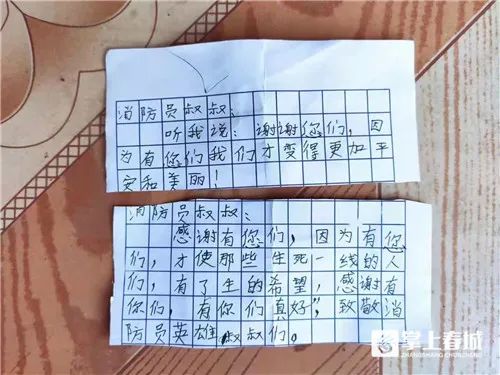 消防员叔叔：
听我说：谢谢您们，因
为有您们我们才变得更加平
安和美丽！
消防员叔叔：
感谢有您们，因为有您
们，才使那些生死一线的人
们，有了生的希望，感谢有
你们，有你们真好”，致敬消
防员英雄叔叔们。
掌上春城
ZHANGSHANG CHUNCHENG